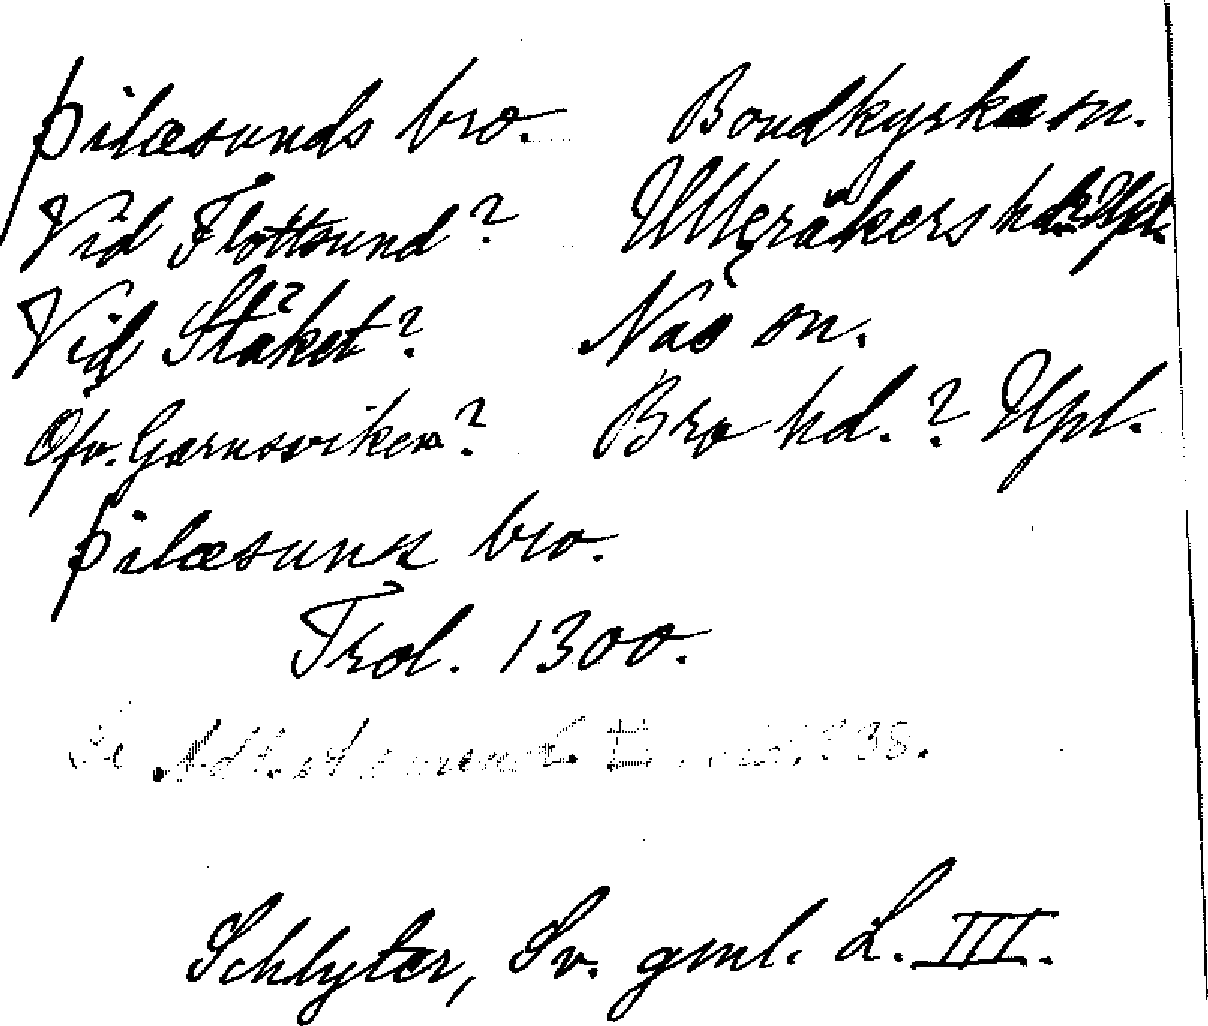 þilæsunds bro. Bondkyrka sn.
Vid Flottsund? Ulleråkers hd. Upl.
Vid Stäket? Näs sn.
Öfv. Garnsviken? Bro hd.? Upl.
þilæsunz bro.
Trol. 1300.
Schlyter, Sv. gml. L. III.